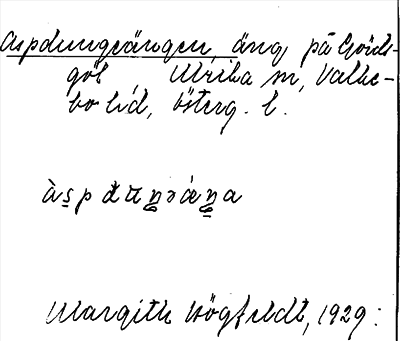 Aspdungeängen, äng på Görds-
göl Ulrika sn, Valke-
bo hd, Österg. l.
àspduŋəäŋa
Margith Högfeldt, 1929.